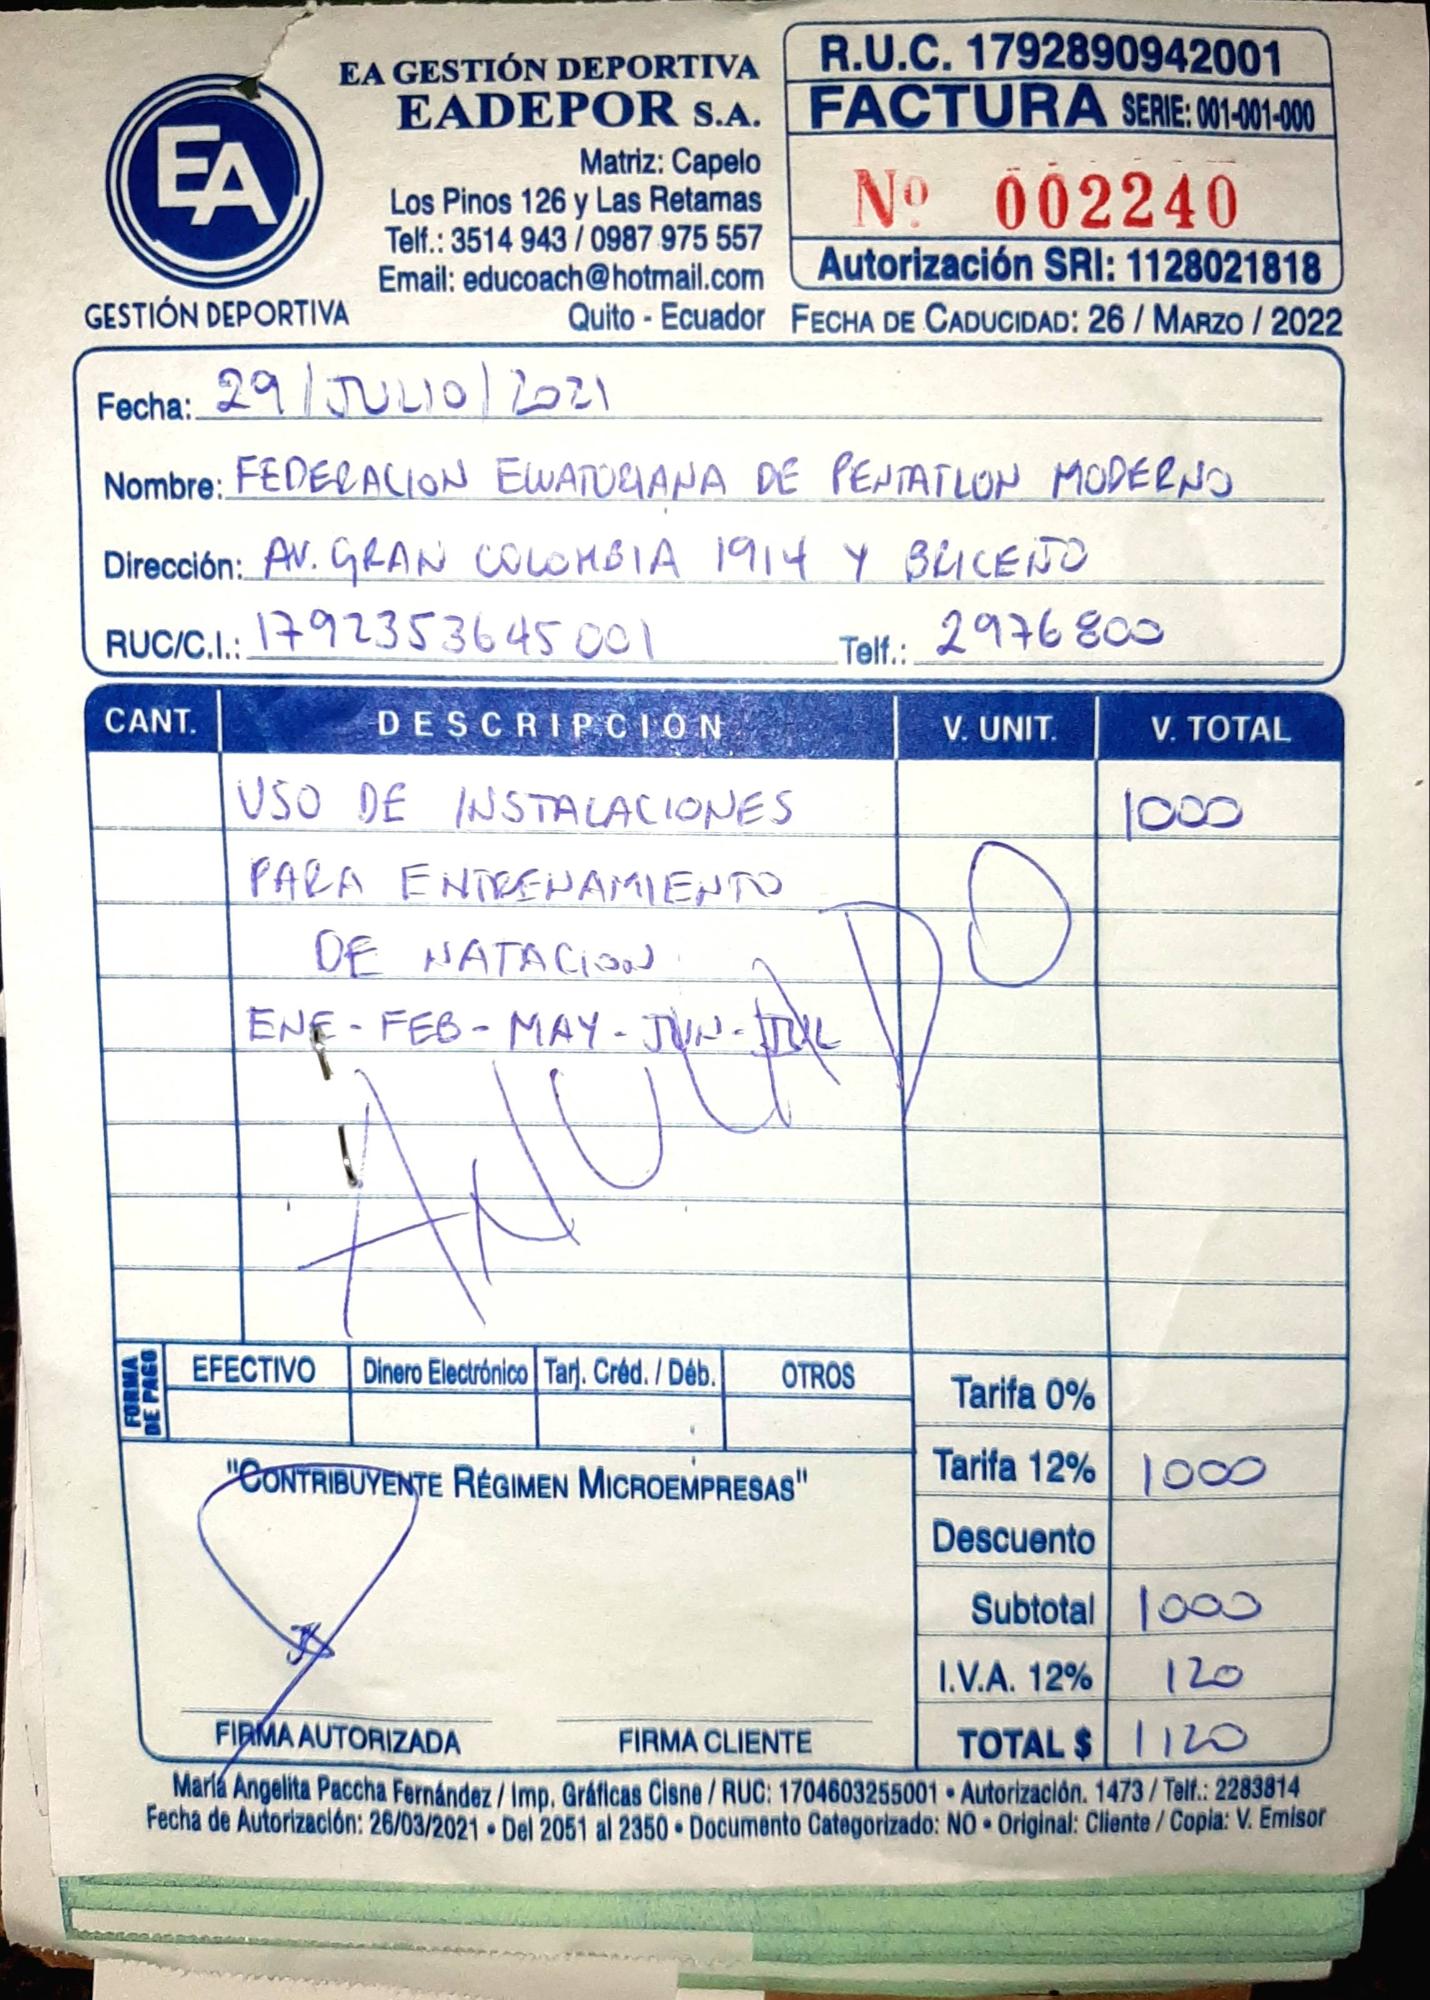 EA GESTIÓN DEPORTIVA
EADEPOR S.A.
Matriz: Capelo
Los Pinos 126 y Las Retamas
Telf.: 3514 943 / 0987 975 557
Email: educoach@hotmail.com
Quito - Ecuador
EA
GESTIÓN DEPORTIVA
R.U.C. 1792890942001
FACTURA SERIE: 001-001-000
Nº 002240
Autorización SRI: 1128021818
FECHA DE CADUCIDAD: 26 / MARZO / 2022
Fecha: 29/JULIO/2021
Nombre: FEDERACION ECUATORIANA DE PENTATLON MODERNO
Dirección: AV. GRAN COLOMBIA 1914 Y BRICEÑO
RUC/C.I.: 1792353645001 Telf.: 2976800
CANT. DESCRIPCIÓN V. UNIT. V. TOTAL
USO DE INSTALACIONES 1000
PARA ENTRENAMIENTO
DE NATACION
ENE - FEB - MAY - JUN - JUL
ANULADO
FORMA DE PAGO
EFECTIVO Dinero Electrónico Tarj. Créd. / Déb. OTROS
Tarifa 0%
Tarifa 12% 1000
Descuento
Subtotal 1000
I.V.A. 12% 120
TOTAL $ 1120
"CONTRIBUYENTE RÉGIMEN MICROEMPRESAS"
FIRMA AUTORIZADA FIRMA CLIENTE
María Angelita Paccha Fernández / Imp. Gráficas Cisne / RUC: 1704603255001 • Autorización. 1473 / Telf.: 2283814
Fecha de Autorización: 26/03/2021 • Del 2051 al 2350 • Documento Categorizado: NO • Original: Cliente / Copia: V. Emisor